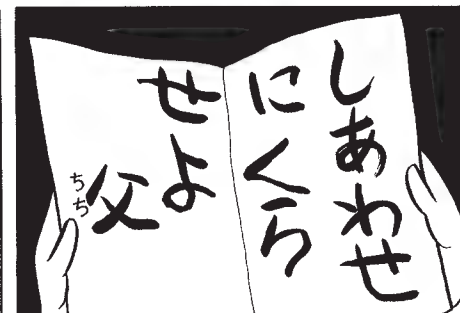 しあわせ
にくら
せよ
父
ちち